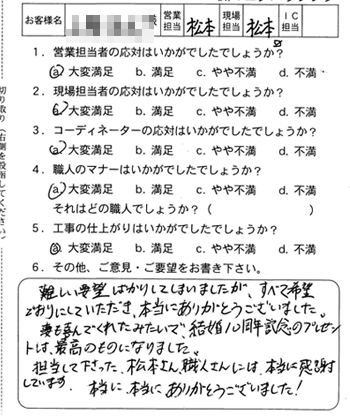 お客様名 様 営業担当 松本 現場担当 松本 IC担当
1．営業担当者の応対はいかがでしたでしょうか？
a. 大変満足 b. 満足 c. やや不満 d. 不満
2．現場担当者の応対はいかがでしたでしょうか？
a. 大変満足 b. 満足 c. やや不満 d. 不満
3．コーディネーターの応対はいかがでしたでしょうか？
a. 大変満足 b. 満足 c. やや不満 d. 不満
4．職人のマナーはいかがでしたでしょうか？
a. 大変満足 b. 満足 c. やや不満 d. 不満
それはどの職人でしょうか？（ ）
5．工事の仕上がりはいかがでしたでしょうか？
a. 大変満足 b. 満足 c. やや不満 d. 不満
6．その他、ご意見・ご要望をお書き下さい。
難しい要望ばかりしてしまいましたが、すべて希望
どおりにしていただき、本当にありがとうございました。
妻も喜んでくれたみたいで、結婚10周年記念のプレゼン
トは、最高のものになりました。
担当して下さった、松本さん、職人さんには、本当に感謝
しています。
本当に、本当にありがとうございました！
切り取り（右側を投函してください）